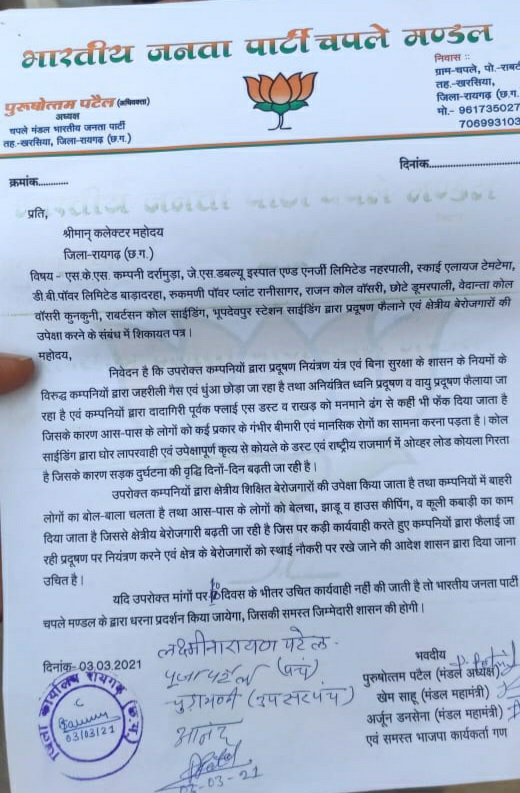 भारतीय जनता पार्टी चपले मण्डल
पुरूषोत्तम पटैल (अधिवक्ता)
अध्यक्ष
चपले मंडल भारतीय जनता पार्टी
तह.-खरसिया, जिला-रायगढ़ (छ.ग.)
निवास ::
ग्राम-चपले, पो.-राबर्ट
तह.-खरसिया,
जिला-रायगढ़ (छ.ग.
मो.- 961735027
706993103
क्रमांक...........
दिनांक...........................
प्रति,
श्रीमान् कलेक्टर महोदय
जिला-रायगढ़ (छ.ग.)
विषय - एस.के.एस. कम्पनी दर्रामुड़ा, जे.एस.डबल्यू इस्पात एण्ड एनर्जी लिमिटेड नहरपाली, स्काई एलायज टेमटेमा,
डी.बी.पॉवर लिमिटेड बाड़ादरहा, रुकमणी पॉवर प्लांट रानीसागर, राजन कोल वॉसरी, छोटे डूमरपाली, वेदान्ता कोल
वॉसरी कुनकुनी, राबर्टसन कोल साईडिंग, भूपदेवपुर स्टेशन साईडिंग द्वारा प्रदूषण फैलाने एवं क्षेत्रीय बेरोजगारों की
उपेक्षा करने के संबंध में शिकायत पत्र।
महोदय,
निवेदन है कि उपरोक्त कम्पनियों द्वारा प्रदूषण नियंत्रण यंत्र एवं बिना सुरक्षा के शासन के नियमों के
विरुद्ध कम्पनियों द्वारा जहरीली गैस एवं धुंआ छोड़ा जा रहा है तथा अनियंत्रित ध्वनि प्रदूषण व वायु प्रदूषण फैलाया जा
रहा है एवं कम्पनियों द्वारा दादागिरी पूर्वक फ्लाई एस डस्ट व राखड़ को मनमाने ढंग से कहीं भी फेंक दिया जाता है
जिसके कारण आस-पास के लोगों को कई प्रकार के गंभीर बीमारी एवं मानसिक रोगों का सामना करना पड़ता है। कोल
साईडिंग द्वारा घोर लापरवाही एवं उपेक्षापूर्ण कृत्य से कोयले के डस्ट एवं राष्ट्रीय राजमार्ग में ओव्हर लोड कोयला गिरता
है जिसके कारण सड़क दुर्घटना की वृद्धि दिनों-दिन बढ़ती जा रही है।
उपरोक्त कम्पनियों द्वारा क्षेत्रीय शिक्षित बेरोजगारों की उपेक्षा किया जाता है तथा कम्पनियों में बाहरी
लोगों का बोल-बाला चलता है तथा आस-पास के लोगों को बेलचा, झाडू व हाउस कीपिंग, व कूली कबाड़ी का काम
दिया जाता है जिससे क्षेत्रीय बेरोजगारी बढ़ती जा रही है जिस पर कड़ी कार्यवाही करते हुए कम्पनियों द्वारा फैलाई जा
रही प्रदूषण पर नियंत्रण करने एवं क्षेत्र के बेरोजगारों को स्थाई नौकरी पर रखे जाने की आदेश शासन द्वारा दिया जाना
उचित है।
यदि उपरोक्त मांगों पर 10 दिवस के भीतर उचित कार्यवाही नहीं की जाती है तो भारतीय जनता पार्टी
चपले मण्डल के द्वारा धरना प्रदर्शन किया जायेगा, जिसकी समस्त जिम्मेदारी शासन की होगी।
लक्ष्मीनारायण पटेल
दिनांक- 03.03.2021
भवदीय
पुरुषोत्तम पटेल (मंडल अध्यक्ष)
खेम साहू (मंडल महामंत्री)
अर्जून डनसेना (मंडल महामंत्री)
एवं समस्त भाजपा कार्यकर्ता गण
(उपसरपंच)
आनंद
03-03-21
कार्यालय रायगढ़ (छ.ग.)
03/03/21